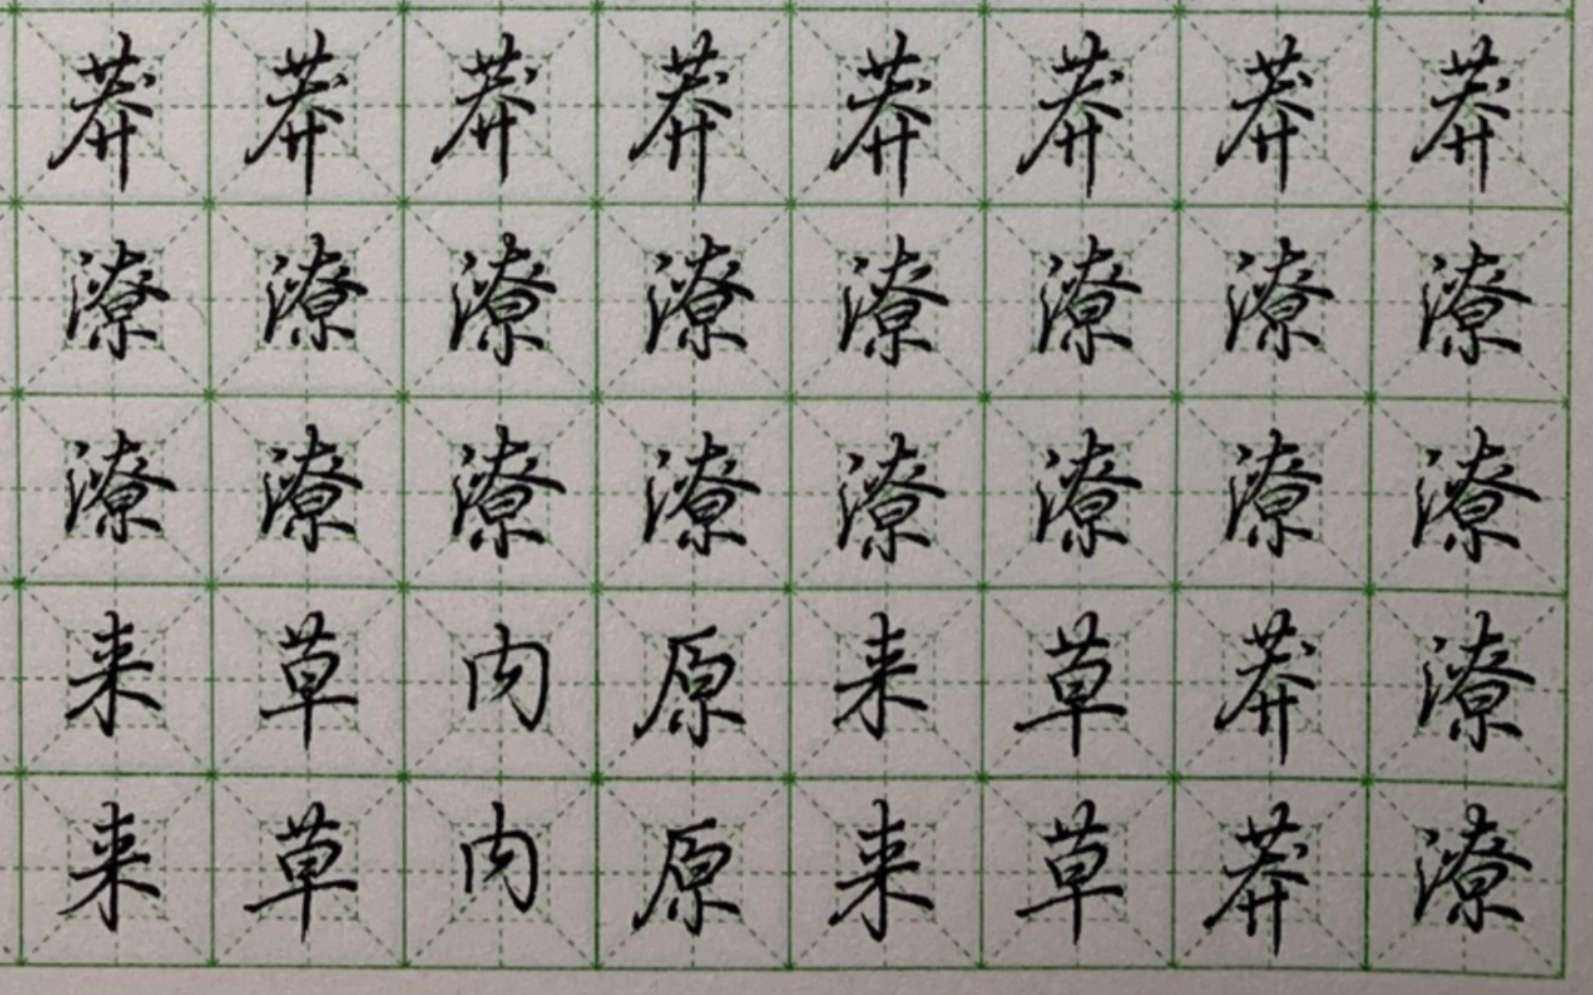 莽莽莽莽莽莽莽莽
潦潦潦潦潦潦潦潦
潦潦潦潦潦潦潦潦
来草内原来草莽潦
来草内原来草莽潦